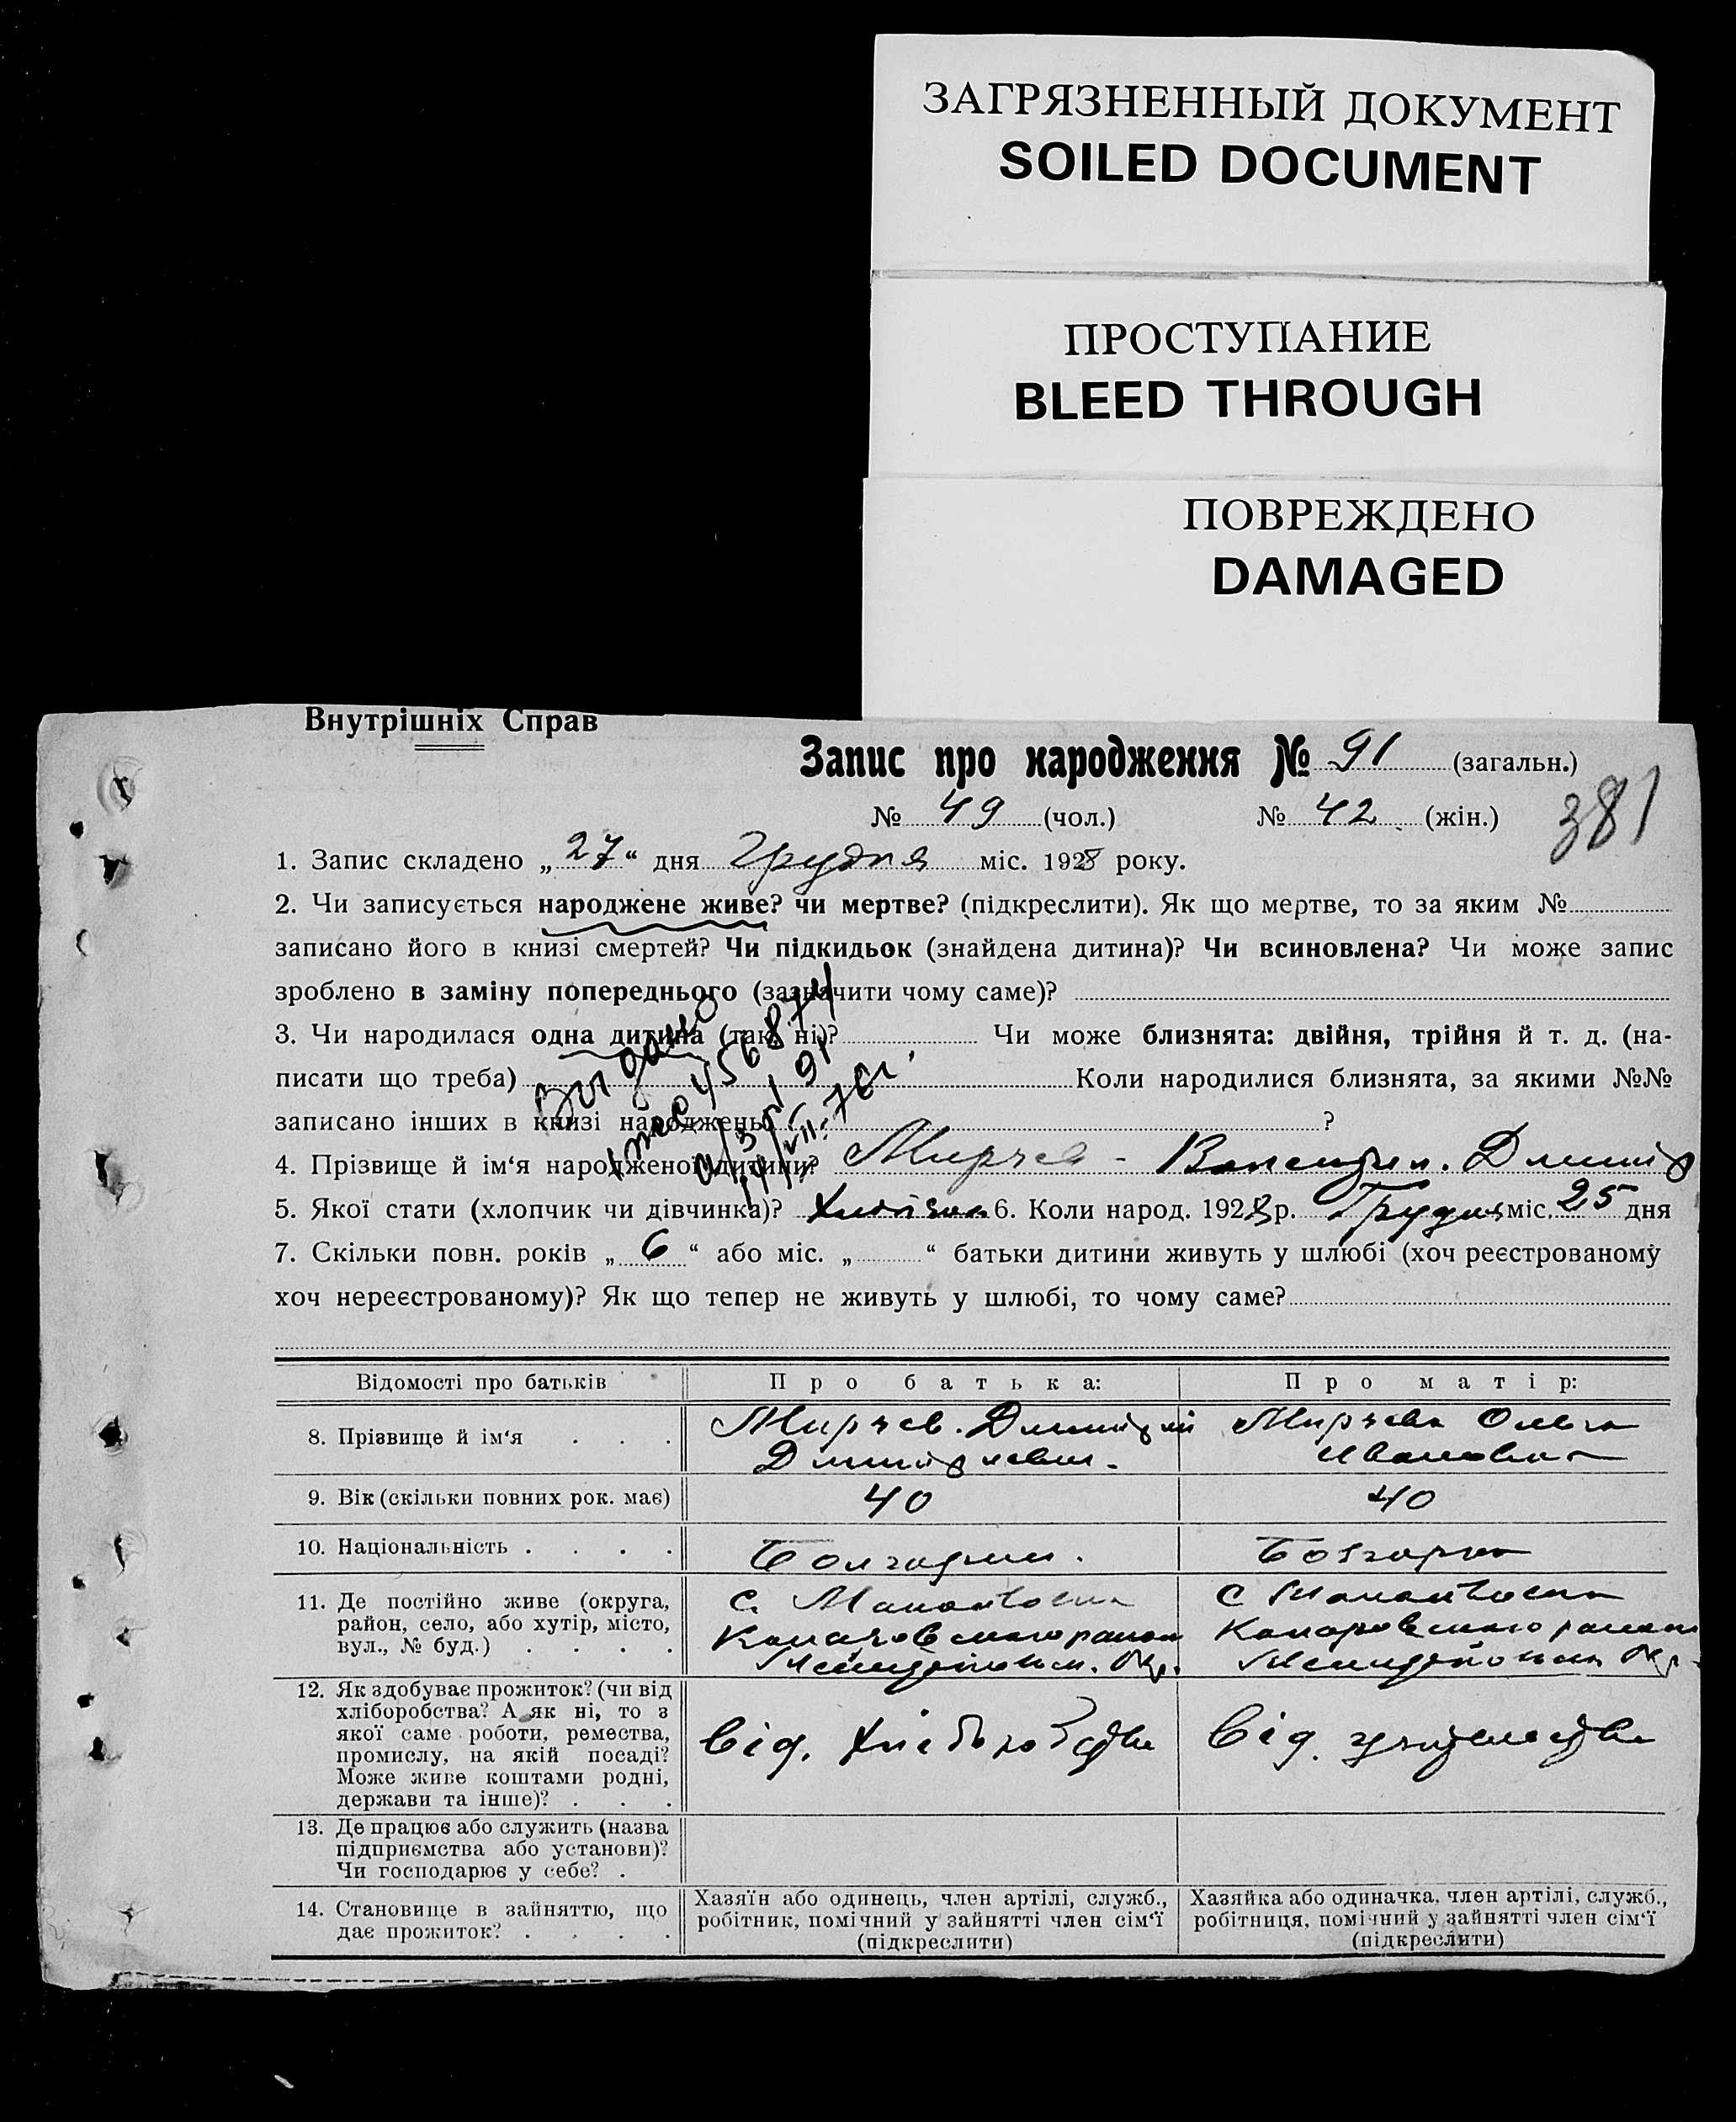 ЗАГРЯЗНЕННЫЙ ДОКУМЕНТ
SOILED DOCUMENT
ПРОСТУПАНИЕ
BLEED THROUGH
ПОВРЕЖДЕНО
DAMAGED
Внутрішніх Справ
Запис про народження № 91 (загальн.)
№ 49 (чол.) № 42 (жін.)
381
1. Запис складено „ 27 “ дня Грудня міс. 1928 року.
2. Чи записується народжене живе? чи мертве? (підкреслити). Як що мертве, то за яким №
записано його в книзі смертей? Чи підкидьок (знайдена дитина)? Чи всиновлена? Чи може запис
зроблено в заміну попереднього (зазначити чому саме)?
3. Чи народилася одна дитина (так, ні)? Чи може близнята: двійня, трійня й т. д. (на-
писати що треба) Коли народилися близнята, за якими №№
записано інших в книзі народжень?
Видано
456874
4. Прізвище й ім‘я народженої дитини? Мирчев - Валентин. Дмитр
5. Якої стати (хлопчик чи дівчинка)? Хлопчик 6. Коли народ. 1928 р. Грудня міс. 25 дня
7. Скільки повн. років „ 6 “ або міс. „ “ батьки дитини живуть у шлюбі (хоч реєстрованому
хоч нереєстрованому)? Як що тепер не живуть у шлюбі, то чому саме?
Відомості про батьків Про батька: Про матір:
8. Прізвище й ім‘я . . . Мирчев. Дмитрий Мирчева Ольга
Дмитриевич. Ивановна
9. Вік (скільки повних рок. має) 40 40
10. Національність . . . . Болгарин. Болгарка
11. Де постійно живе (округа,
район, село, або хутір, місто,
вул., № буд.) . . . .
с.
района
Окр.
с
района
Окр.
12. Як здобуває прожиток? (чи від
хліборобства? А як ні, то з
якої саме роботи, ремества,
промислу, на якій посаді?
Може живе коштами родні,
держави та інше)? . . .
Від. Хліборобства
Від.
13. Де працює або служить (назва
підприємства або установи)?
Чи господарює у себе? .
14. Становище в зайняттю, що
дає прожиток? . . . .
Хазяїн або одинець, член артілі, служб.,
робітник, помічний у зайнятті член сім‘ї
(підкреслити)
Хазяйка або одиначка, член артілі, служб.,
робітниця, помічний у зайнятті член сім‘ї
(підкреслити)